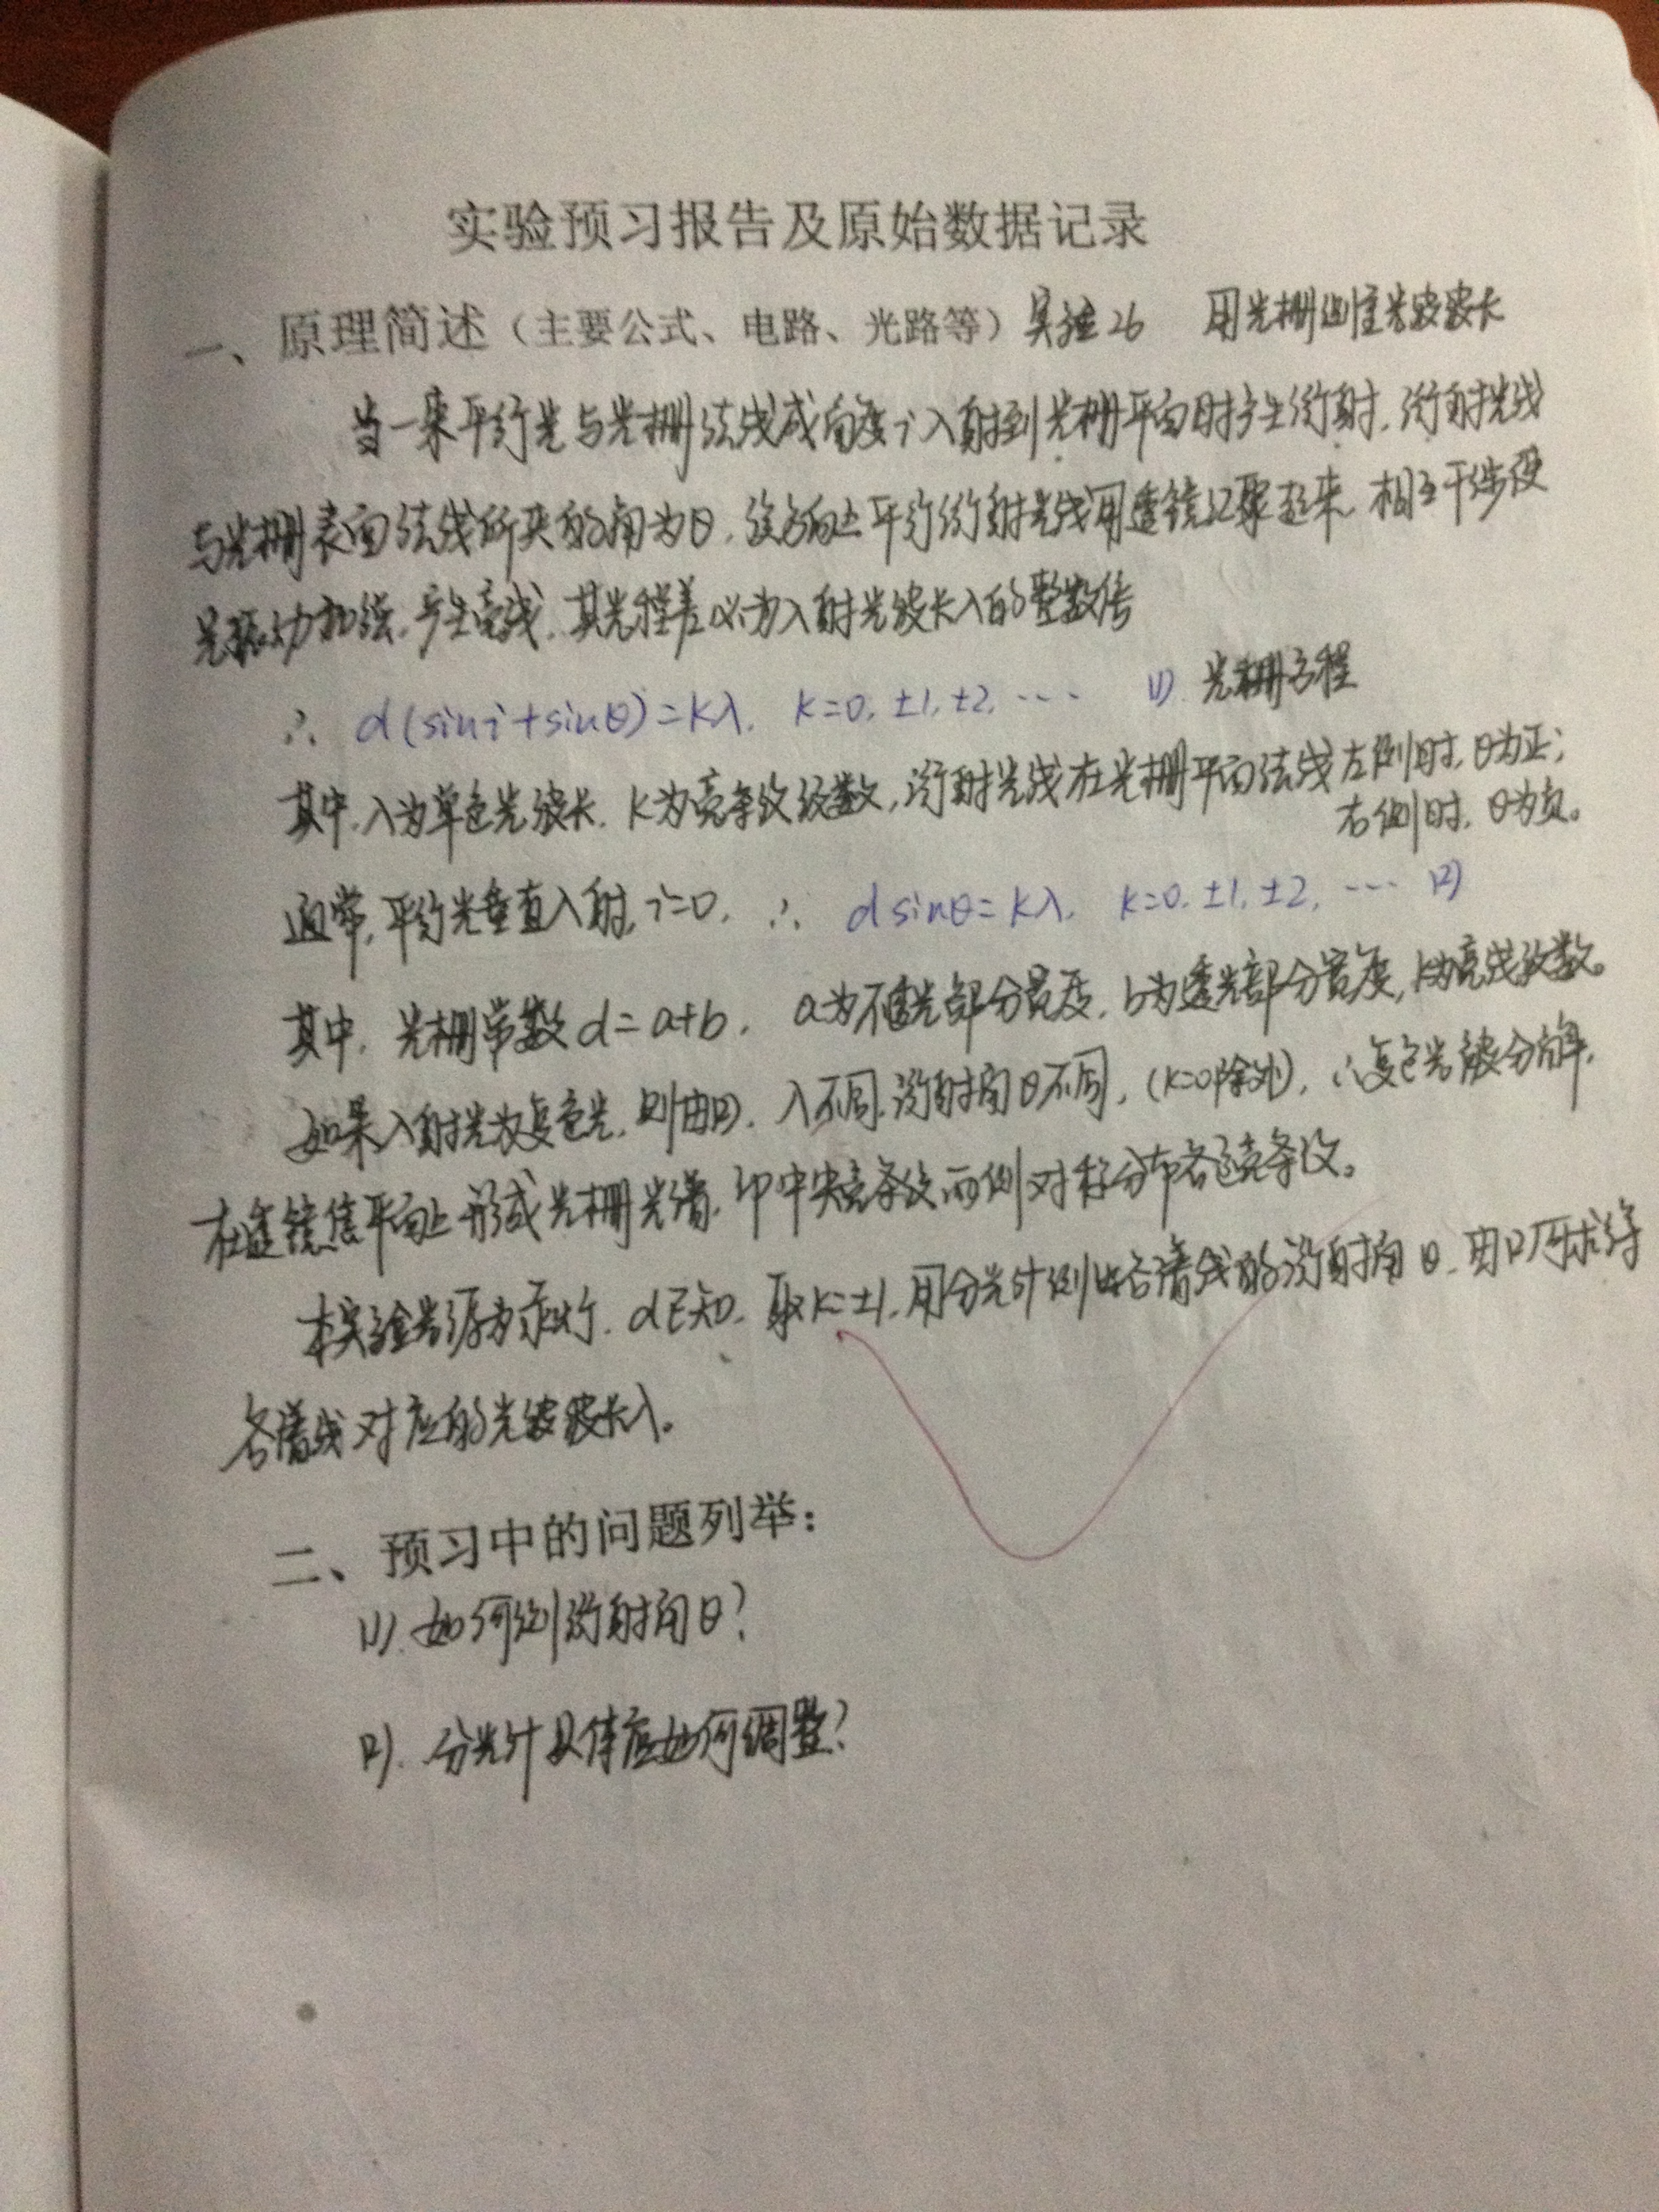 实验预习报告及原始数据记录
一、原理简述（主要公式、电路、光路等）实验26 用光栅测量光波波长
当一束平行光与光栅法线成角度i入射到光栅平面时产生衍射.衍射光线
与光栅表面法线所夹的角为θ.该方向上平行衍射光线用透镜汇聚起来.相互干涉使
光振动加强.产生亮线.其光程差必为入射光波长λ的整数倍
∴ d(sini+sinθ)=kλ. k=0.±1,±2,… (1) 光栅方程
其中.λ为单色光波长. k为亮条纹级数,衍射光线在光栅平面法线左侧时,θ为正;
右侧时,θ为负。
通常,平行光垂直入射,i=0. ∴ dsinθ=kλ. k=0.±1,±2,… (2)
其中.光栅常数d=a+b. a为不透光部分宽度.b为透光部分宽度,k为亮线级数。
如果入射光为复色光.则由(2).λ不同.衍射角θ不同,(k=0除外),∴复色光被分解.
在透镜焦平面上形成光栅光谱.即中央亮条纹两侧对称分布各色亮条纹。
本实验光源为汞灯.d已知.取k=±1.用分光计测出各谱线的衍射角θ.由(2)可求得
各谱线对应的光波波长λ。
二、预习中的问题列举：
(1).如何测衍射角θ?
(2).分光计具体应如何调整?